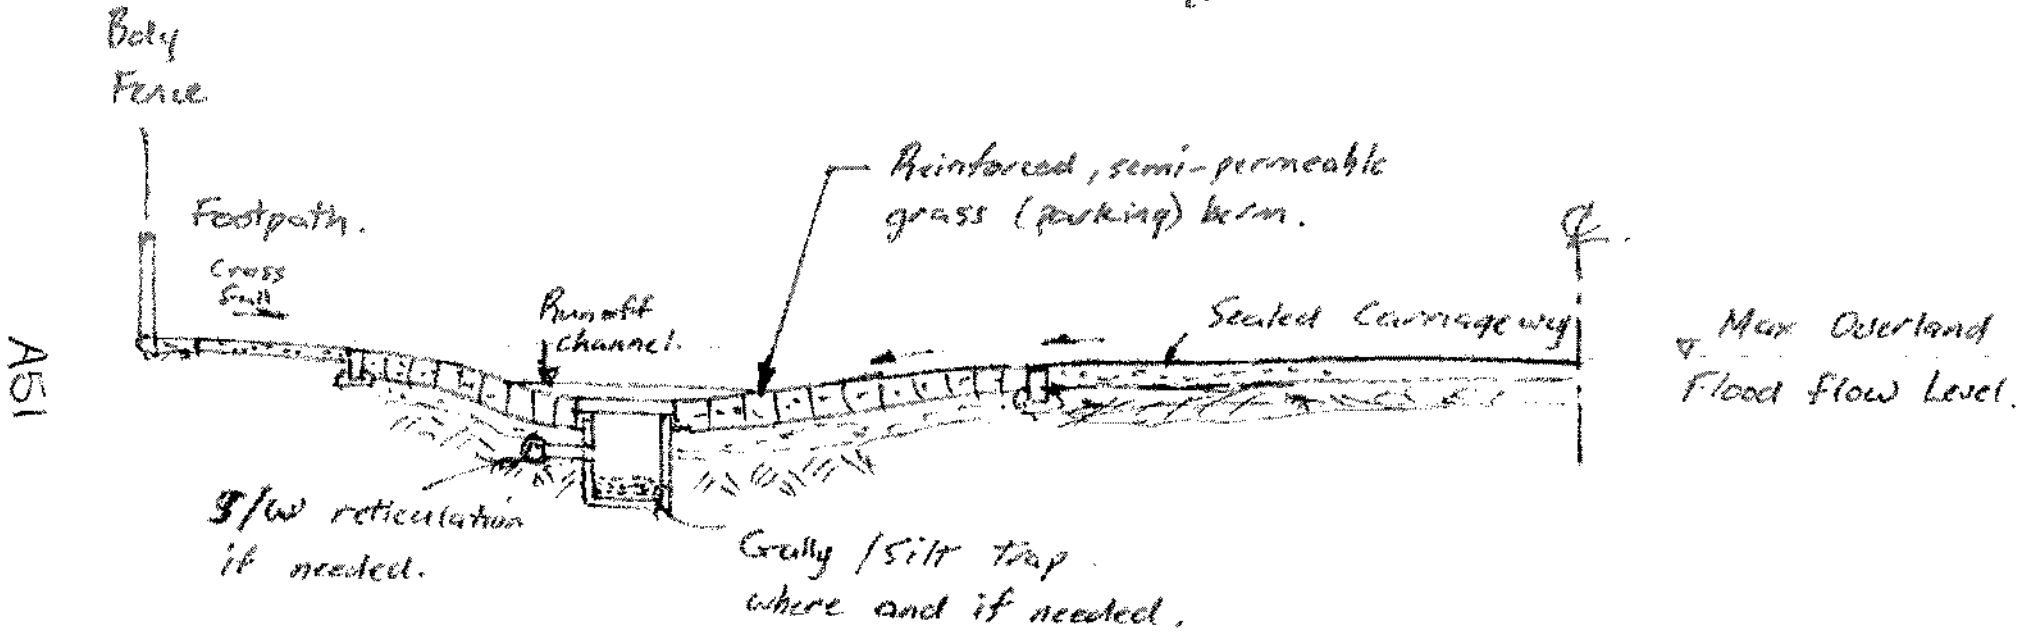 Bdy
Fence
Footpath.
Cross
Fall
Runoff
channel.
Reinforced, semi-permeable
grass (parking) berm.
Sealed Carriageway
℄.
Max Overland
Flood flow Level.
S/W reticulation
if needed.
Gully / Silt Trap
where and if needed.
A51